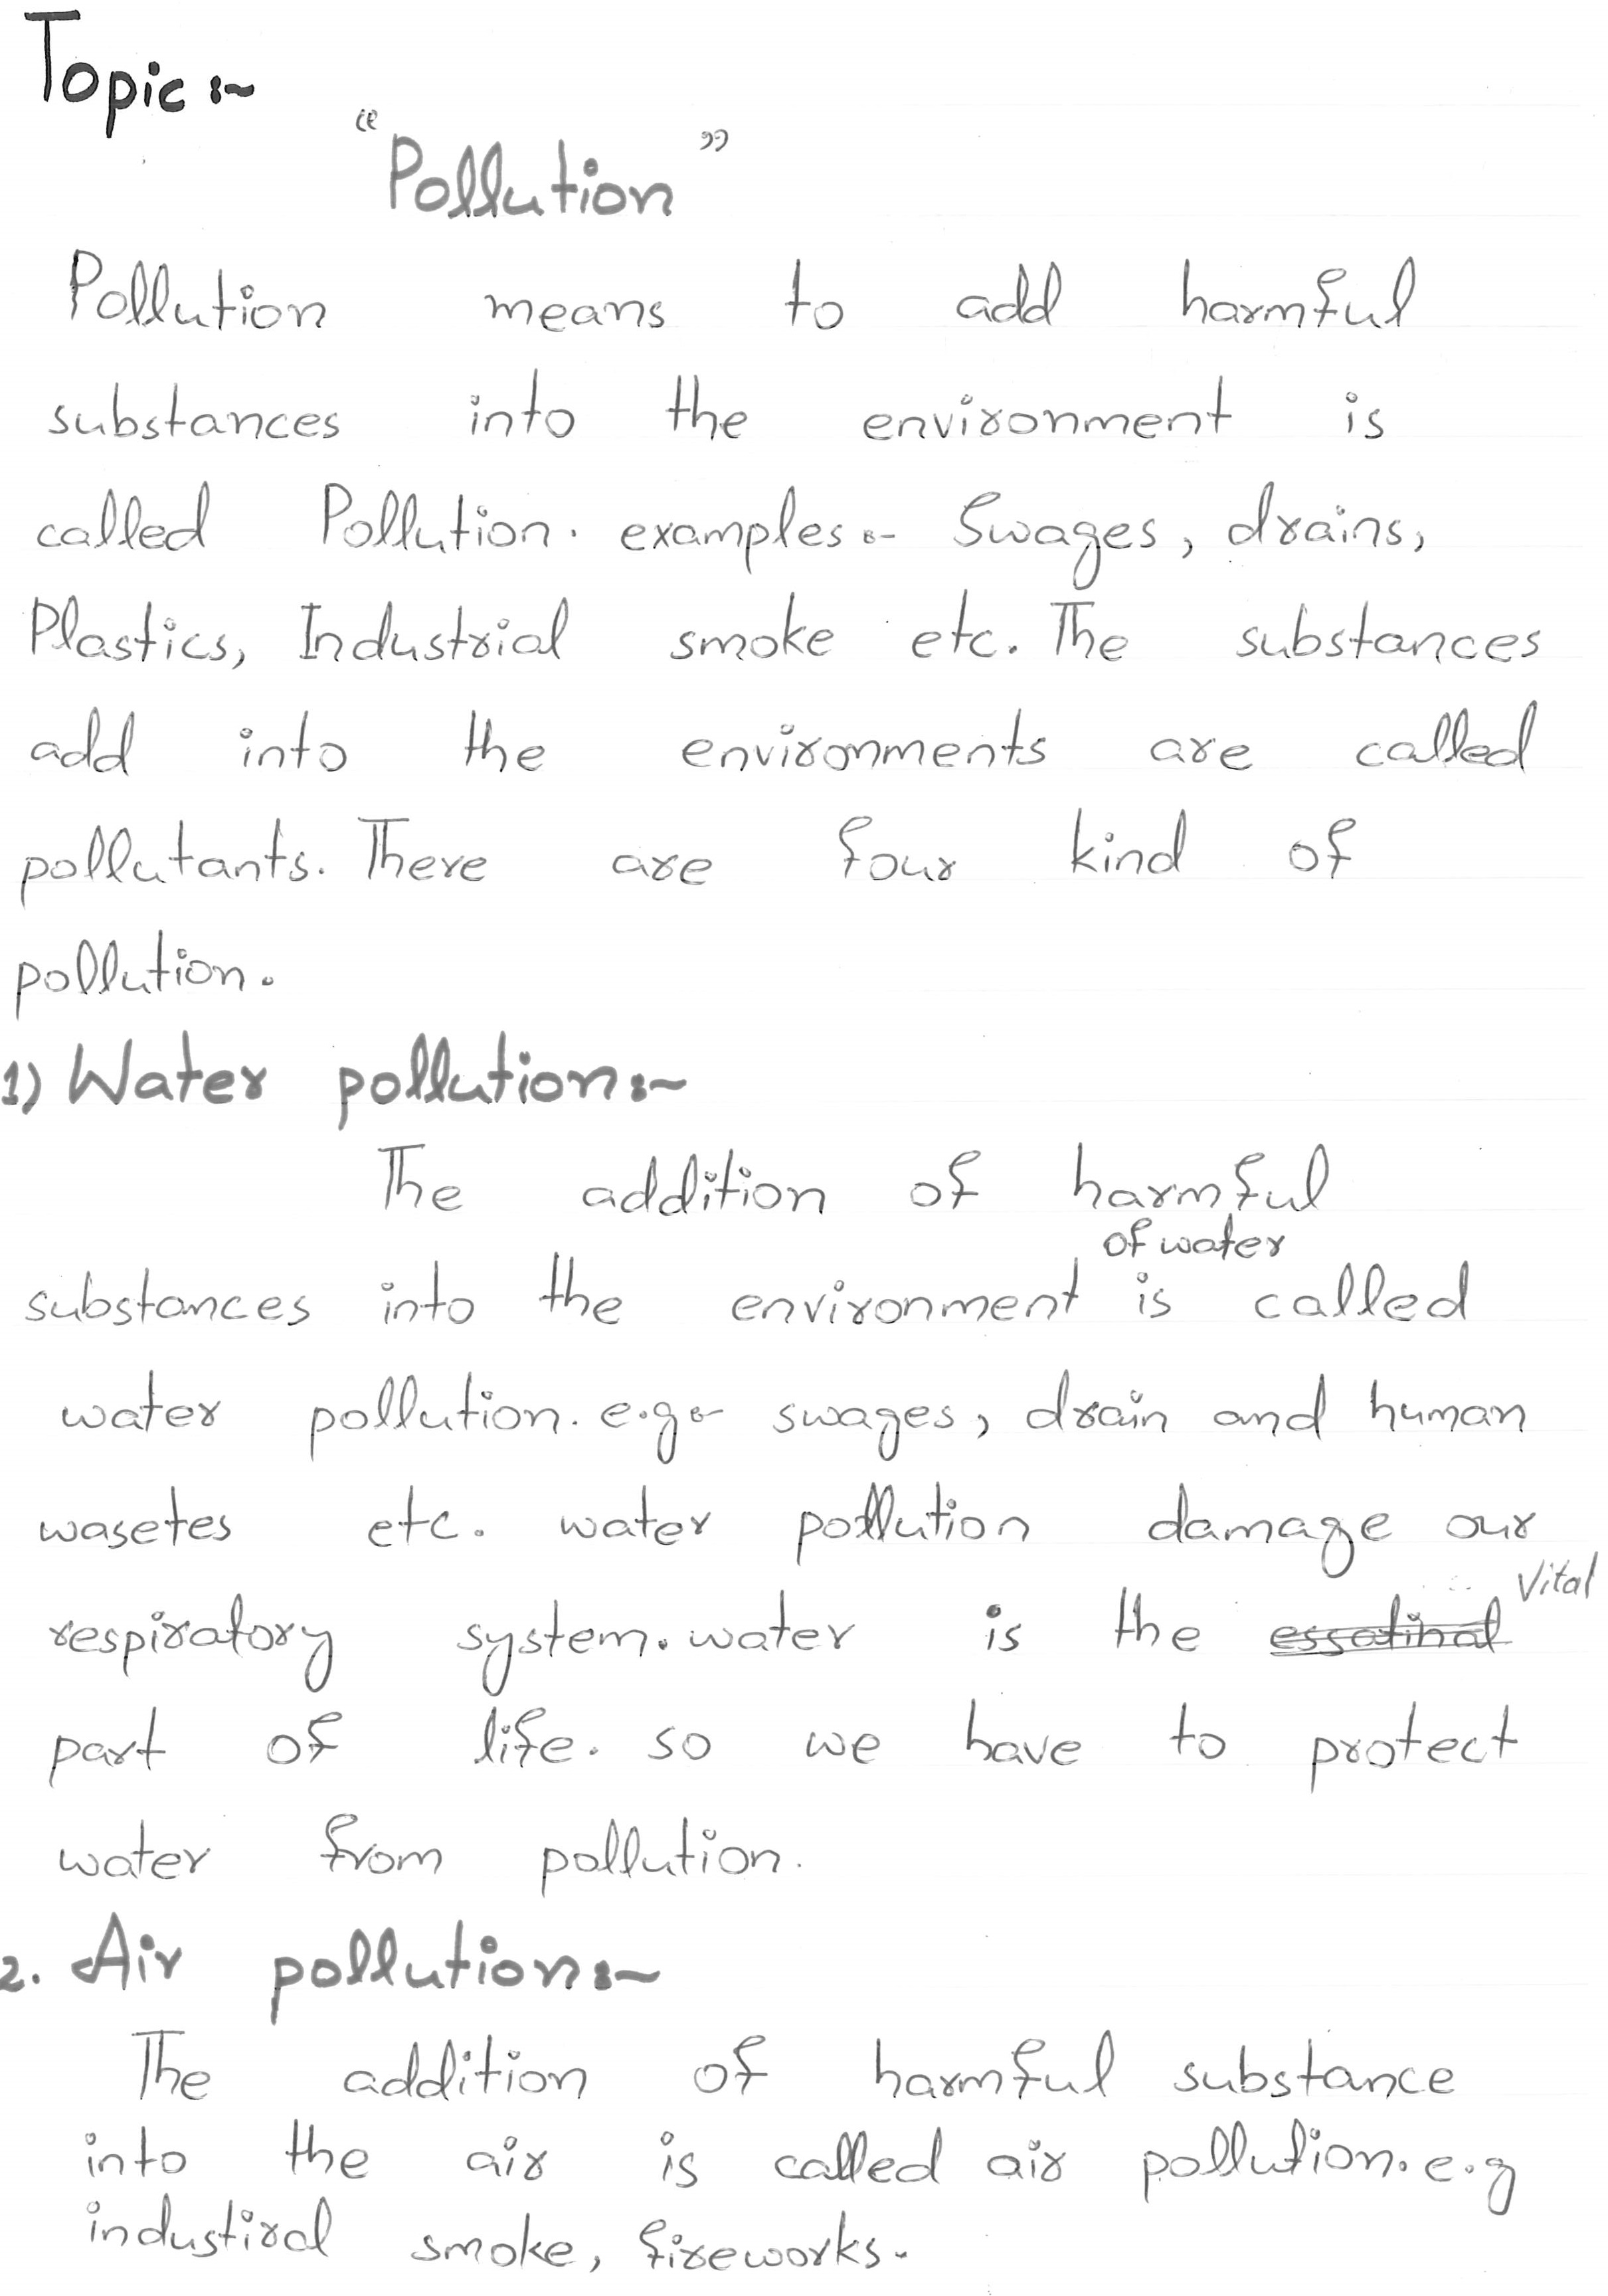 Topic :~
"Pollution"
Pollution means to add harmful
substances into the environment is
called Pollution. examples:- Swages, drains,
Plastics, Industrial smoke etc. The substances
add into the environments are called
pollutants. There are four kind of
pollution.
1) Water pollution:~
The addition of harmful
of water
substances into the environment is called
water pollution. e.g:- swages, drain and human
wasetes etc. water pollution damage our
Vital
respiratory system. water is the essatinal
part of life. so we have to protect
water from pollution.
2. Air pollution:~
The addition of harmful substance
into the air is called air pollution. e.g
industiral smoke, fireworks.